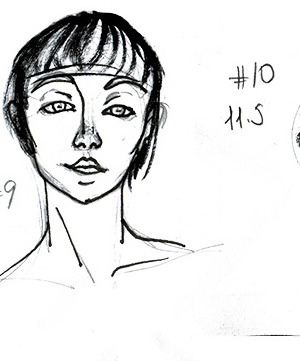 #10
11.5
9